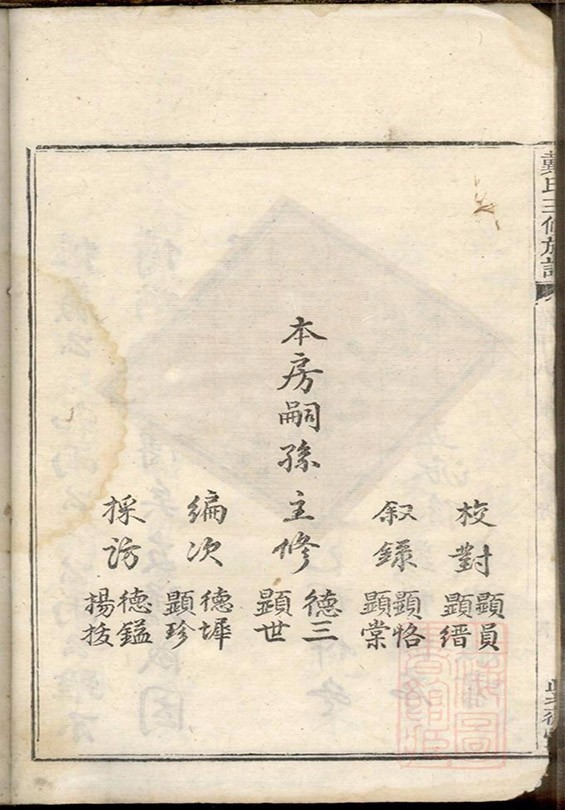 戴氏三修族譜
校對 顯員 顯縉
叙錄 顯恪 顯棠
本房嗣孫主修 德三 顯世
編次 德墀 顯珍
採訪 德鎰 揚拔